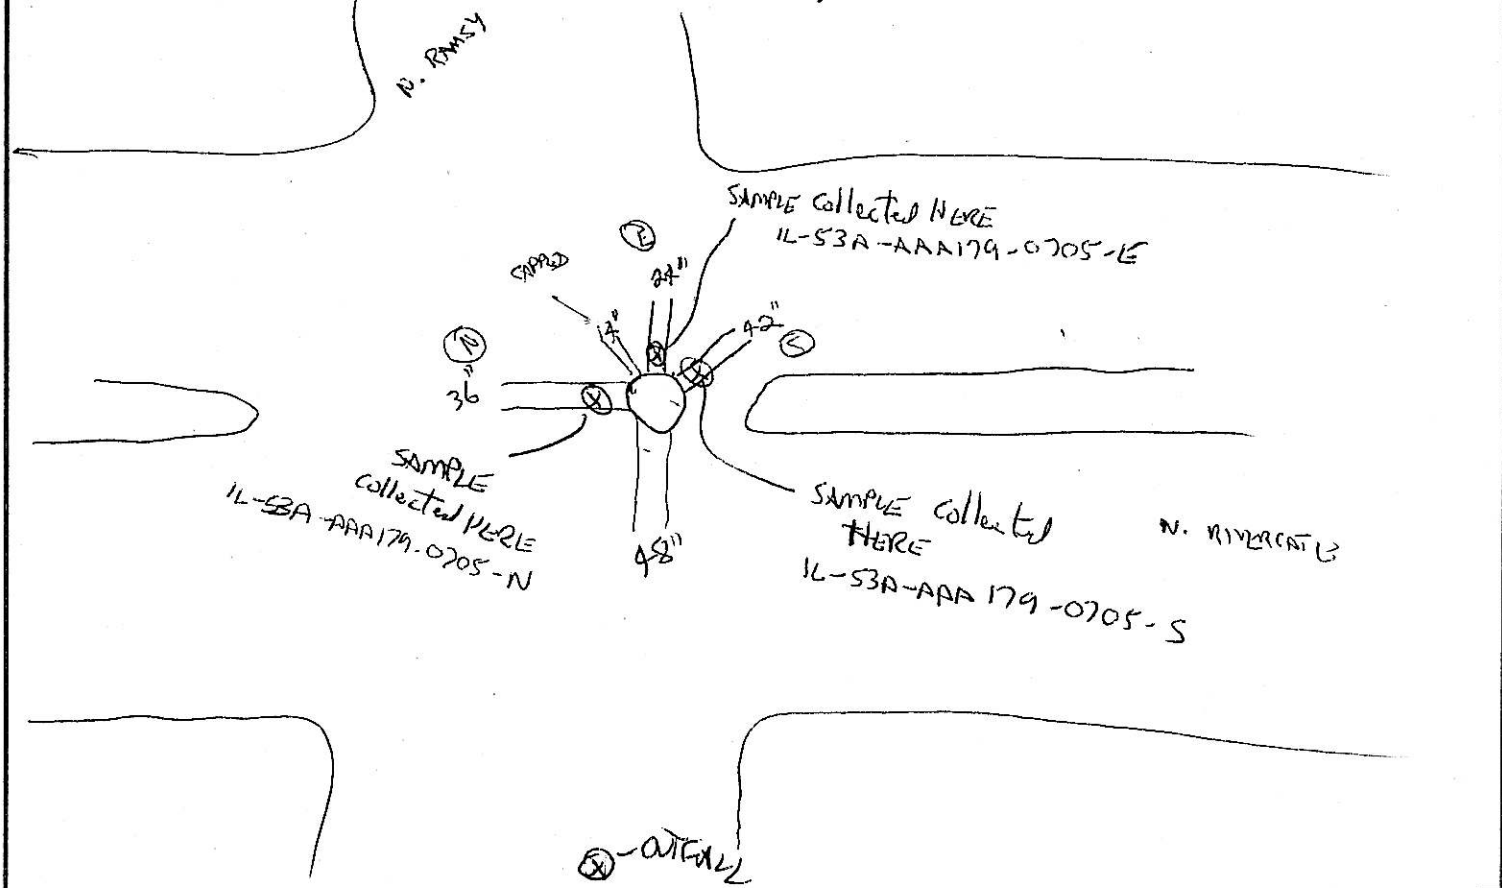 N. RAMSY
SAMPLE collected HERE
IL-53A-AAA179-0705-E
E
CAPPED
24"
14"
42"
S
N
36"
SAMPLE
collected HERE
IL-53A-AAA179-0705-N
48"
SAMPLE collected
HERE
IL-53A-AAA179-0705-S
N. RIVERGATE
X - OUTFALL